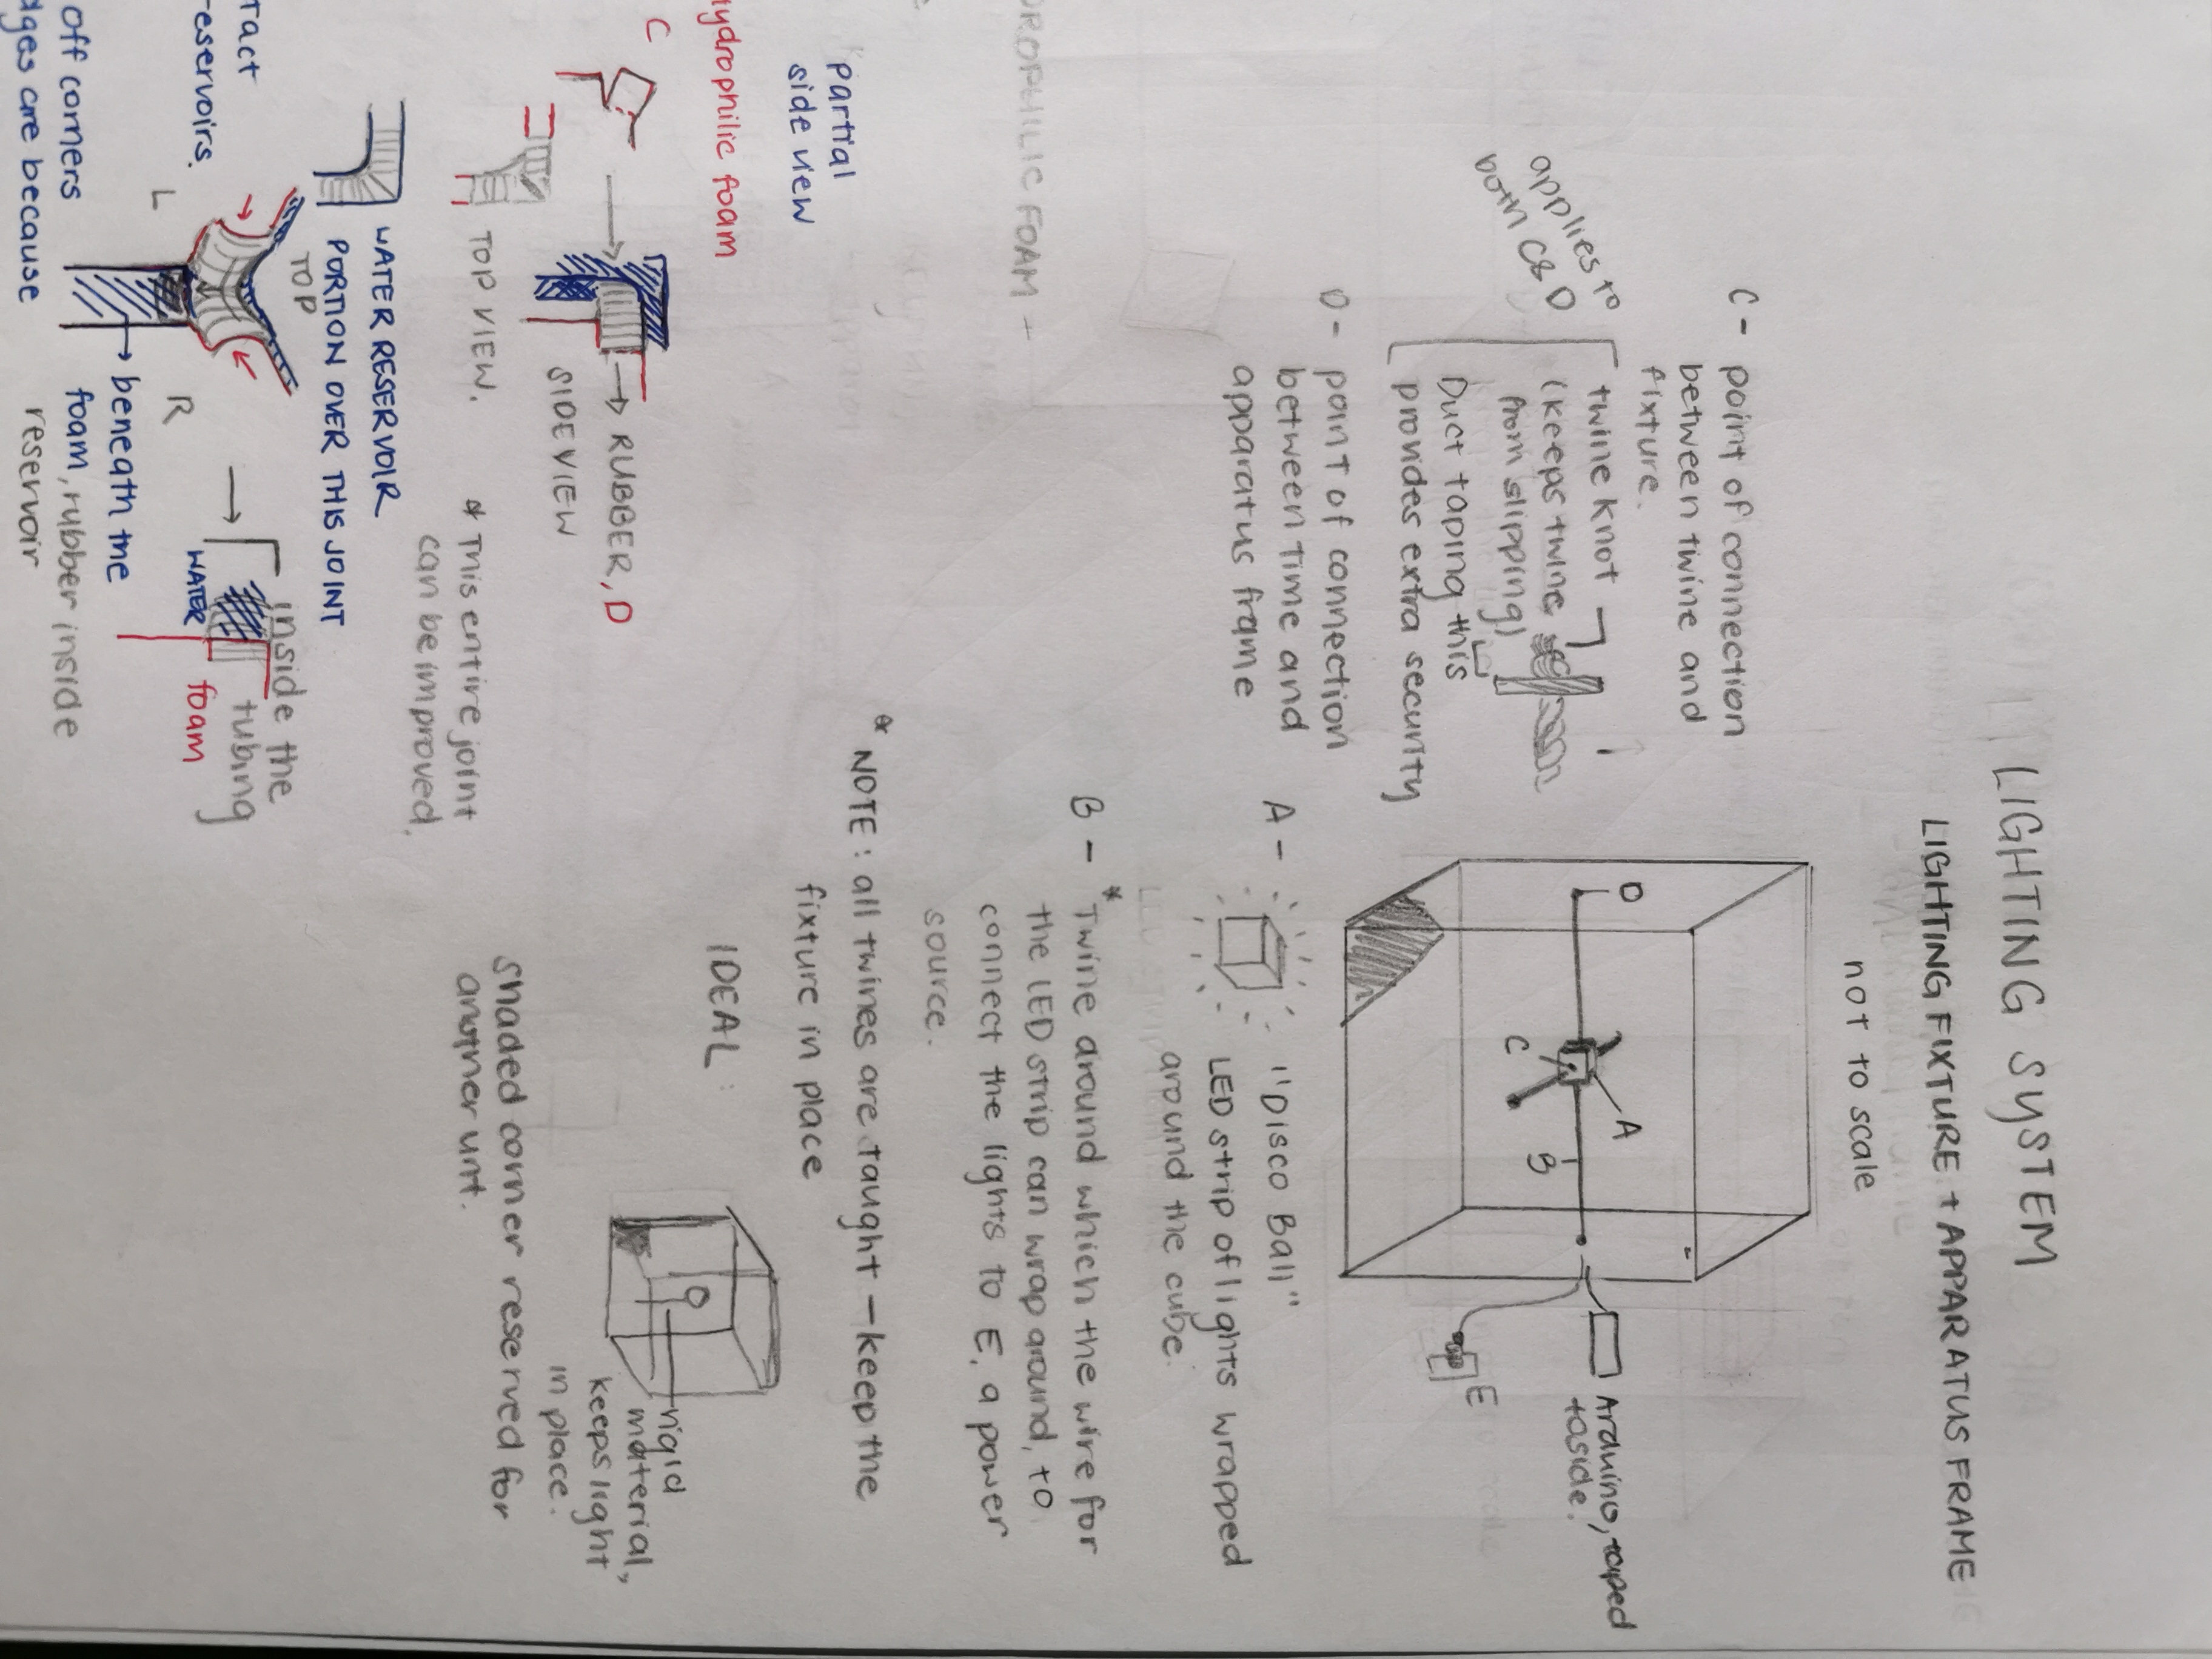 LIGHTING SYSTEM
LIGHTING FIXTURE + APPARATUS FRAME
not to scale
D
A
C
B
Arduino, taped
to side.
E
C - point of connection
between twine and
fixture.
twine knot
(keeps twine
from slipping)
Duct taping this
provides extra security
applies to
both C & D
D - point of connection
between time and
apparatus frame
A -
"Disco Ball"
LED strip of lights wrapped
around the cube.
B - * Twine around which the wire for
the LED strip can wrap around, to
connect the lights to E, a power
source.
* NOTE: all twines are taught - keep the
fixture in place
IDEAL:
rigid
material,
keeps light
in place.
shaded corner reserved for
another unit.
DROPHILIC FOAM -
partial
side view
ydrophilic foam
C
RUBBER, D
SIDE VIEW
TOP VIEW.
* This entire joint
can be improved.
WATER RESERVOIR
PORTION OVER THIS JOINT
TOP
inside the
tubing
WATER
foam
L
R
ract
reservoirs.
beneath the
foam, rubber inside
reservoir
off corners
dges are because